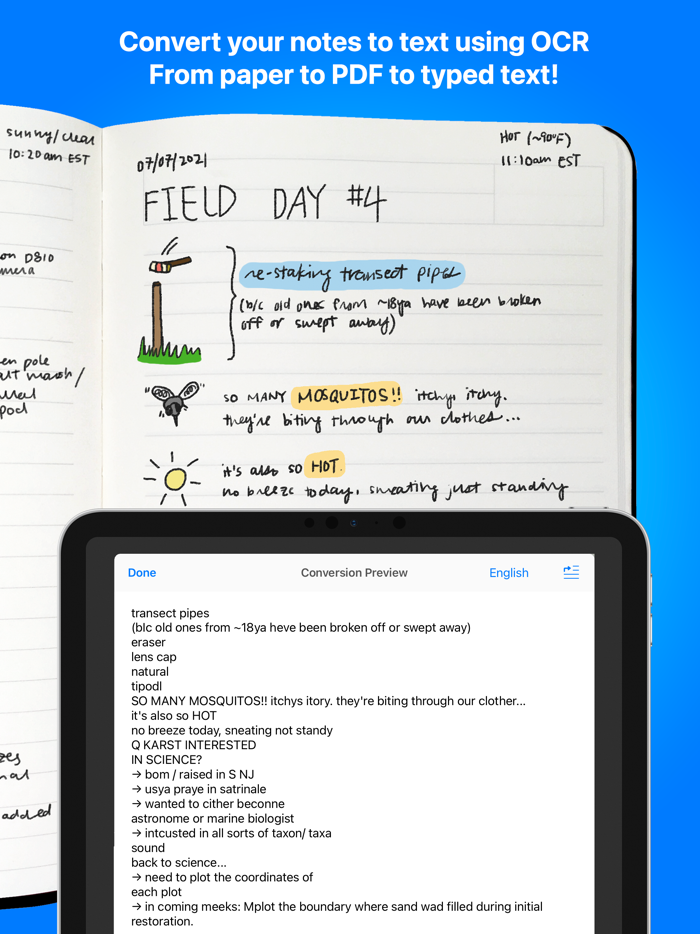 Convert your notes to text using OCR
From paper to PDF to typed text!
sunny/clear
10:20am EST
on D810
mera
en pole
alt marsh/
pod
zes
nal
added
07/07/2021
HOT (~90°F)
11:10am EST
FIELD DAY #4
re-staking transect pipes
(b/c old ones from ~18ya have been broken
off or swept away)
SO MANY MOSQUITOS!! itchy, itchy.
they're biting through our clothes...
it's also so HOT.
no breeze today, sweating just standing
Done
Conversion Preview
English
transect pipes
(bIc old ones from ~18ya heve been broken off or swept away)
eraser
lens cap
natural
tipodl
SO MANY MOSQUITOS!! itchys itory. they're biting through our clother...
it's also so HOT
no breeze today, sneating not standy
Q KARST INTERESTED
IN SCIENCE?
→ bom / raised in S NJ
→ usya praye in satrinale
→ wanted to cither beconne
astronome or marine biologist
→ intcusted in all sorts of taxon/ taxa
sound
back to science...
→ need to plot the coordinates of
each plot
→ in coming meeks: Mplot the boundary where sand wad filled during initial
restoration.